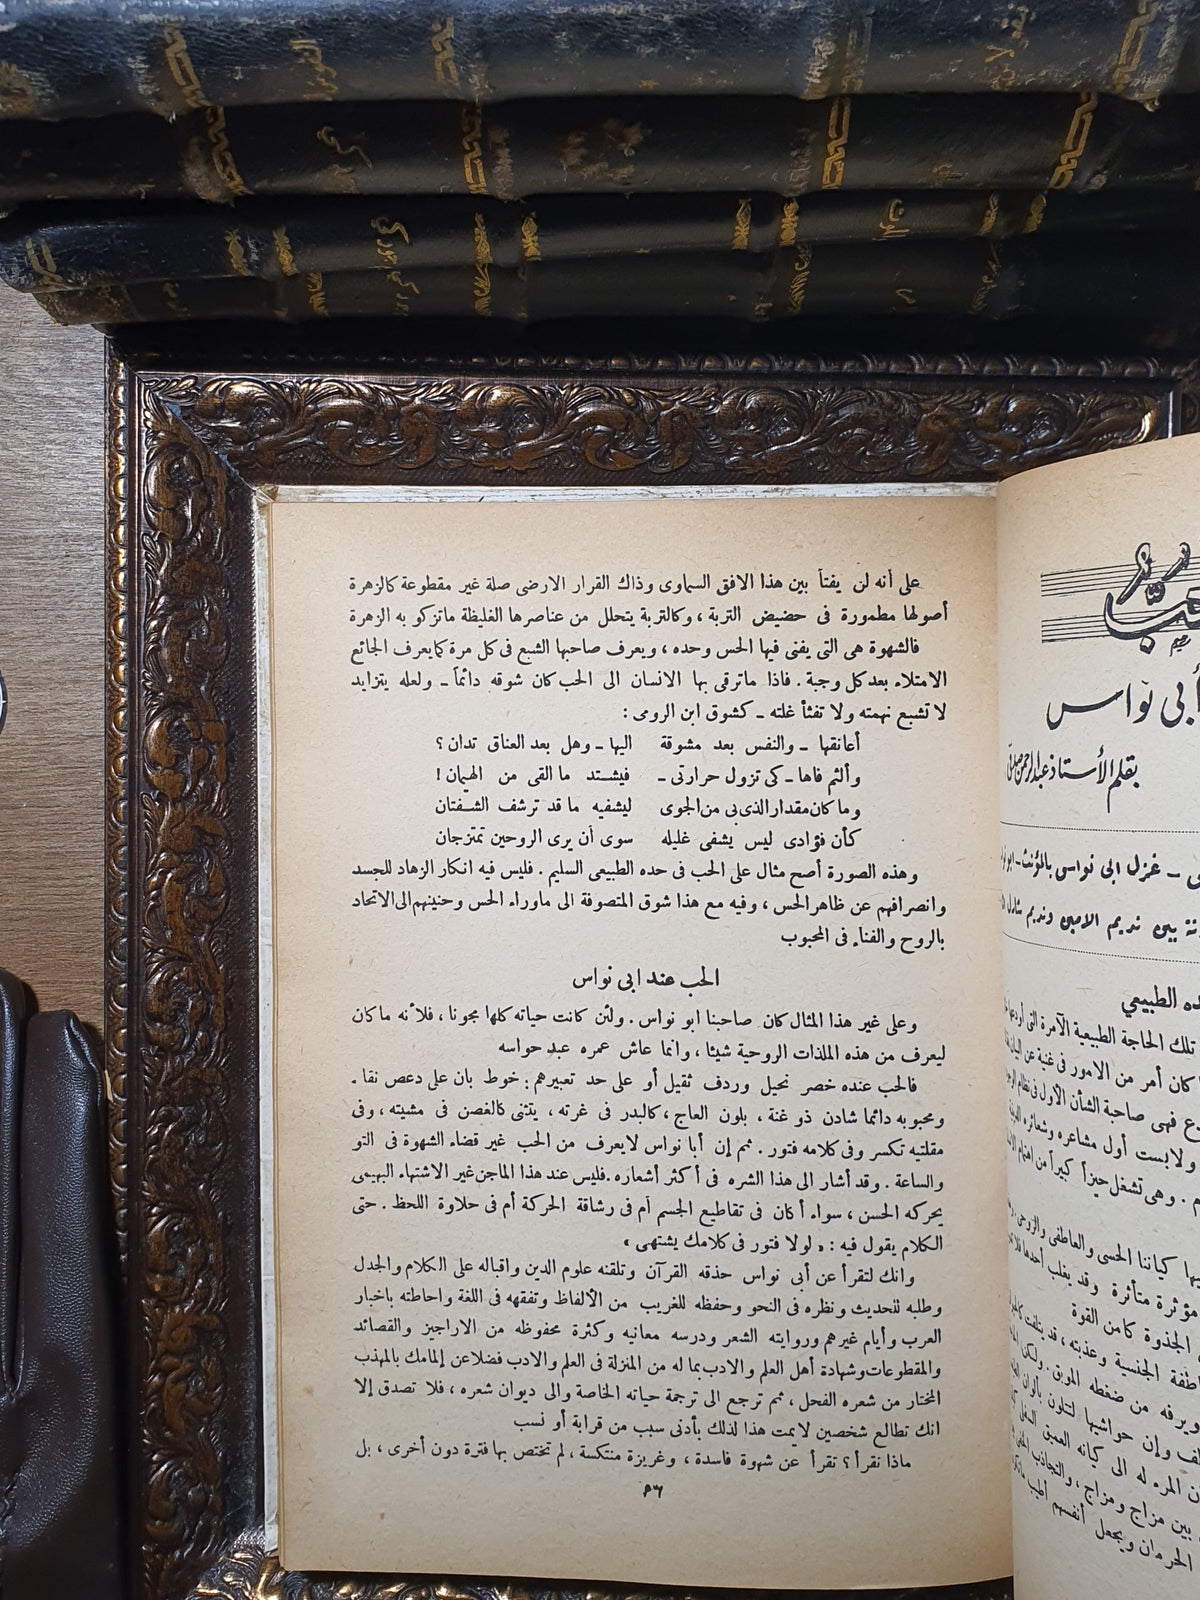 على أنه لن يفتأ بين هذا الافق السماوى وذاك القرار الارضى صلة غير مقطوعة كالزهرة
أصولها مطمورة فى حضيض التربة ، وكالتربة يتحلل من عناصرها الغليظة ماتزكو به الزهرة
فالشهوة هى التى يفنى فيها الحس وحده ، ويعرف صاحبها الشبع فى كل مرة كما يعرف الجائع
الامتلاء بعد كل وجبة . فاذا ماترقى بها الانسان الى الحب كان شوقه دائماً ـ ولعله يتزايد
لا تشبع نهمته ولا تفثأ غلته ـ كشوق ابن الرومى :
أعانقها ـ والنفس بعد مشوقة اليها ـ وهل بعد العناق تدان ؟
وألثم فاها ـ كى تزول حرارتى ـ فيشتد ما القى من الهيمان !
وما كان مقدار الذى بى من الجوى ليشفيه ما قد ترشف الشفتان
كأن فؤادى ليس يشفى غليله سوى أن يرى الروحين تمتزجان
وهذه الصورة أصح مثال على الحب فى حده الطبيعى السليم . فليس فيه انكار الزهاد للجسد
وانصرافهم عن ظاهر الحس ، وفيه مع هذا شوق المتصوفة الى ماوراء الحس وحنينهم الى الاتحاد
بالروح والفناء فى المحبوب
الحب عند ابى نواس
وعلى غير هذا المثال كان صاحبنا ابو نواس . ولئن كانت حياته كلها مجونا ، فلأنه ما كان
ليعرف من هذه الملذات الروحية شيئا ، وانما عاش عمره عبد حواسه
فالحب عنده خصر نحيل وردف ثقيل أو على حد تعبيرهم : خوط بان على دعص نقا .
ومحبوبه دائما شادن ذو غنة ، بلون العاج ، كالبدر فى غرته ، يتثنى كالغصن فى مشيته ، وفى
مقلتيه تكسر وفى كلامه فتور . ثم إن أبا نواس لايعرف من الحب غير قضاء الشهوة فى التو
والساعة . وقد أشار الى هذا الشره فى أكثر أشعاره . فليس عند هذا الماجن غير الاشتهاء البهيمى
يحركه الحسن ، سواء أكان فى تقاطيع الجسم أم فى رشاقة الحركة أم فى حلاوة اللحظ . حتى
الكلام يقول فيه : « لولا فتور فى كلامك يشتهى »
وانك لتقرأ عن أبى نواس حذقه القرآن وتلقنه علوم الدين واقباله على الكلام والجدل
وطلبه للحديث ونظره فى النحو وحفظه للغريب من الألفاظ وتفقهه فى اللغة واحاطته باخبار
العرب وأيام غيرهم وروايته الشعر ودرسه معانيه وكثرة محفوظه من الاراجيز والقصائد
والمقطوعات وشهادة أهل العلم والادب بما له من المنزلة فى العلم والادب فضلا عن إلمامك بالمهذب
المختار من شعره الفحل ، ثم ترجع الى ترجمة حياته الخاصة والى ديوان شعره ، فلا تصدق إلا
انك تطالع شخصين لايمت هذا لذلك بأدنى سبب من قرابة أو نسب
ماذا نقرأ ؟ تقرأ عن شهوة فاسدة ، وغريزة منتكسة ، لم تختص بها فترة دون أخرى ، بل
٣٦
أبى نواس
بقلم الأستاذ عبدالرحمن صدقى
ـ غزل ابى نواس بالمؤنث ـ
بين نديم الامين ونديم
الطبيعي
تلك الحاجة الطبيعية الآمرة التى
كان أمر من الامور فى غنية عن البيان
فهى صاحبة الشأن الأول فى نظام
ولابست أول مشاعره وشعائره
وهى تشغل حيزاً كبيراً من اهتمام
كياننا الحسى والعاطفى والروحى
مؤثرة متأثرة وقد يغلب أحدها
الجذوة كامن القوة
الجنسية وعذبته ، قد
ويرفه من ضغطه الموبق . ولكن
وإن حواشيها لتتلون بألوان
المرء له الى كيانه العميق
بين مزاج ومزاج ، والتجاذب
الحرمان ويجعل أنفسهم أطيب